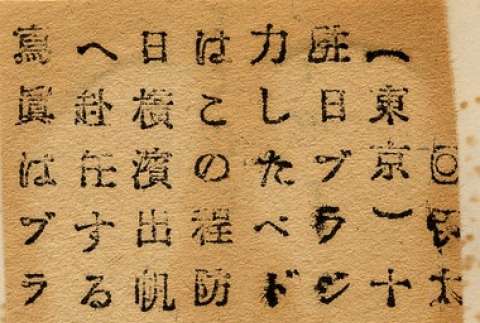 （東京）十
駐日ブラジ
力したペド
はこの程防
日横濱出帆
へ赴任する
寫眞はブラ